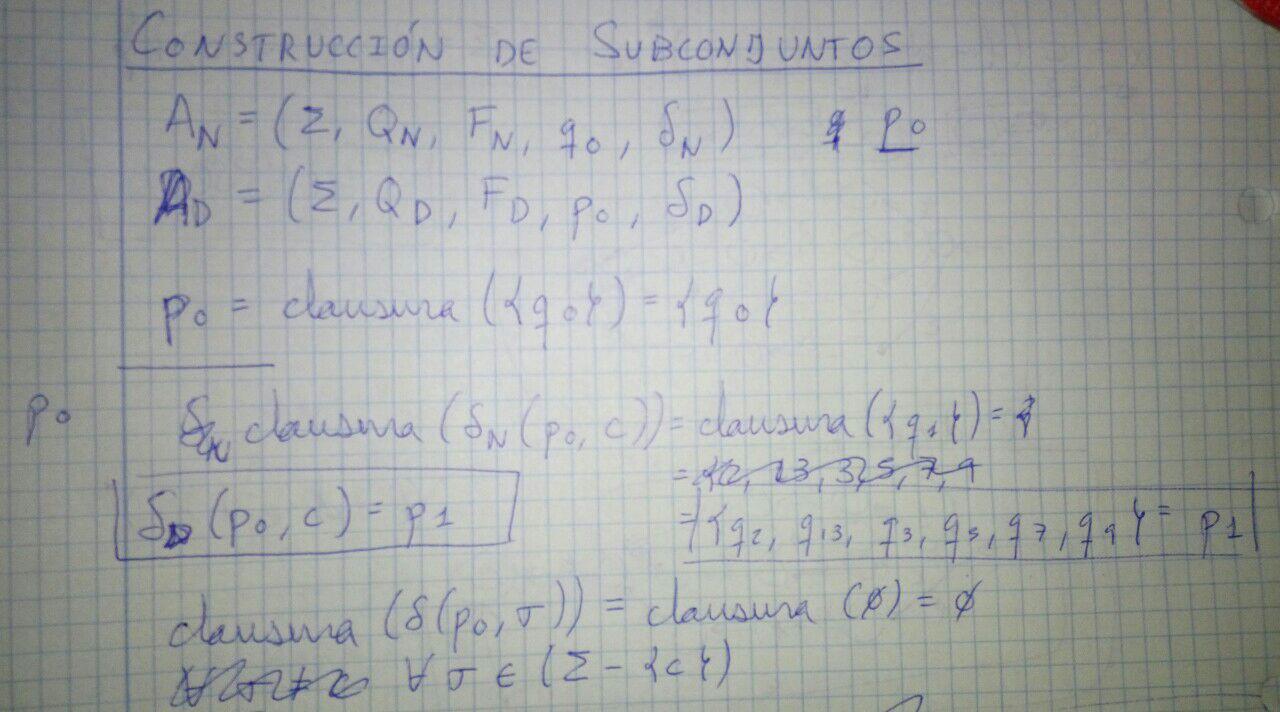 CONSTRUCCIÓN DE SUBCONJUNTOS
A_N = (Σ, Q_N, F_N, q_0, δ_N) p_0
A_D = (Σ, Q_D, F_D, p_0, δ_D)
p_0 = clausura ({q_0}) = {q_0}
p_0 clausura (δ_N (p_0, c)) = clausura ({q_2}) =
δ_D (p_0, c) = p_1
= {q_2, q_13, q_3, q_5, q_7, q_9} = p_1
clausura (δ(p_0, σ)) = clausura (∅) = ∅
∀ σ ∈ (Σ - {c})